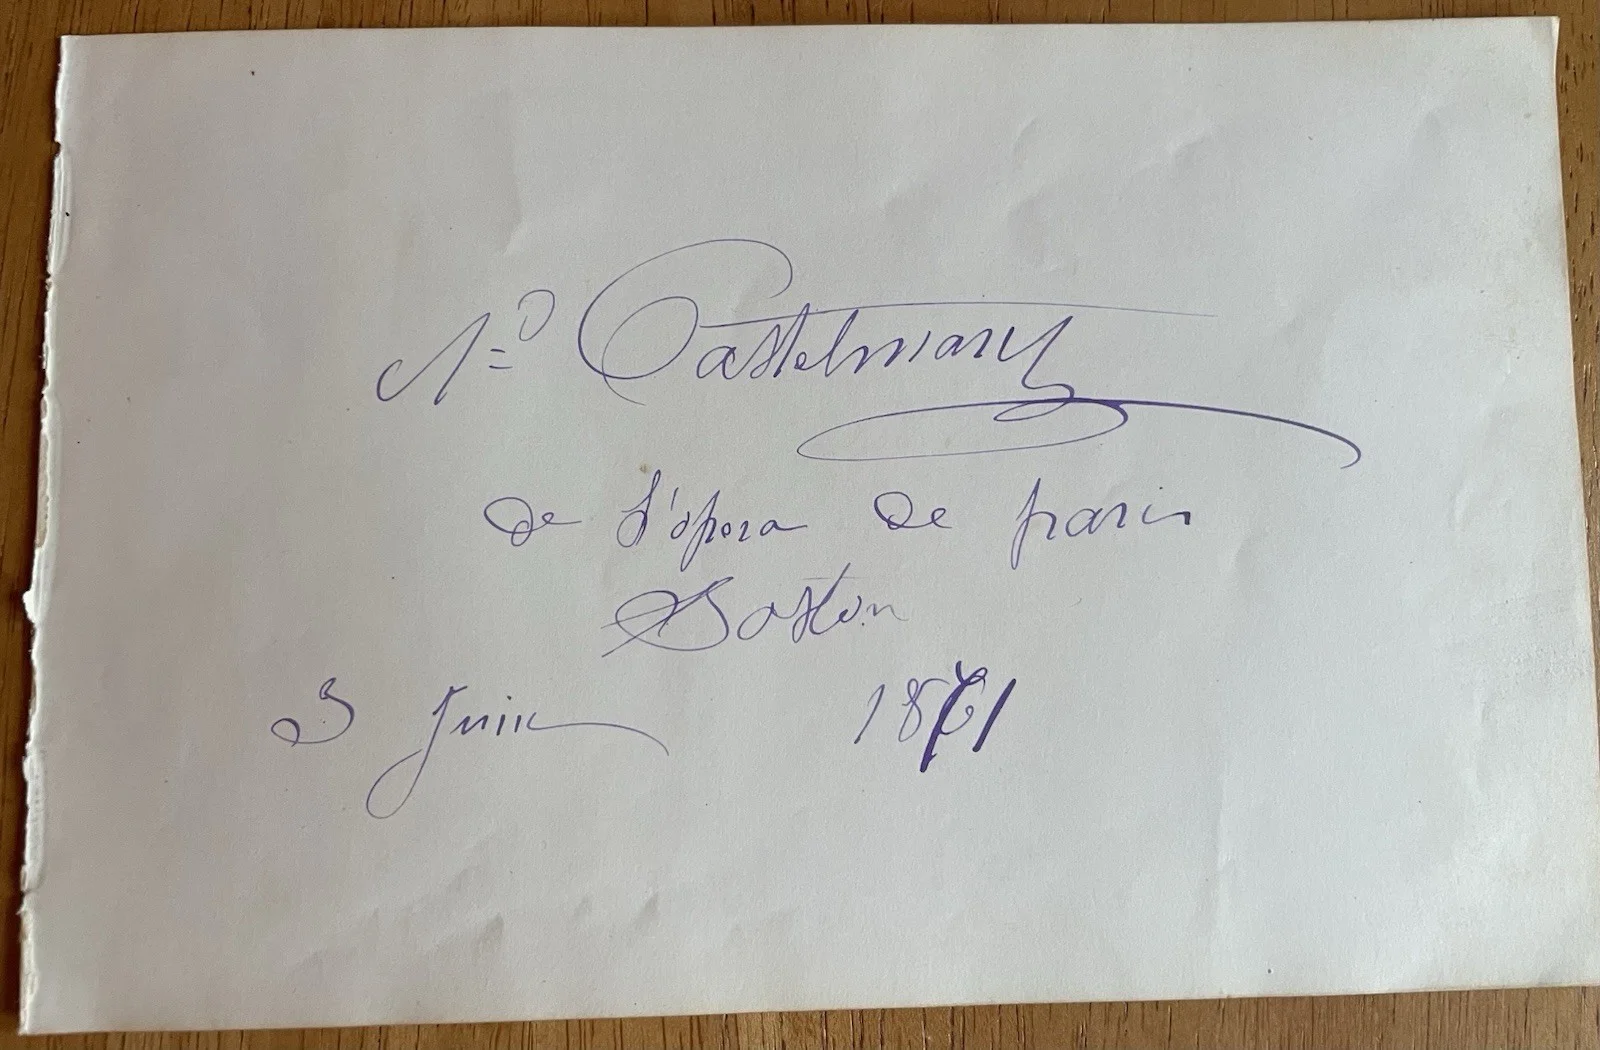 Ad Castelmary
de l'opera de paris
Boston
3 Juin 1871